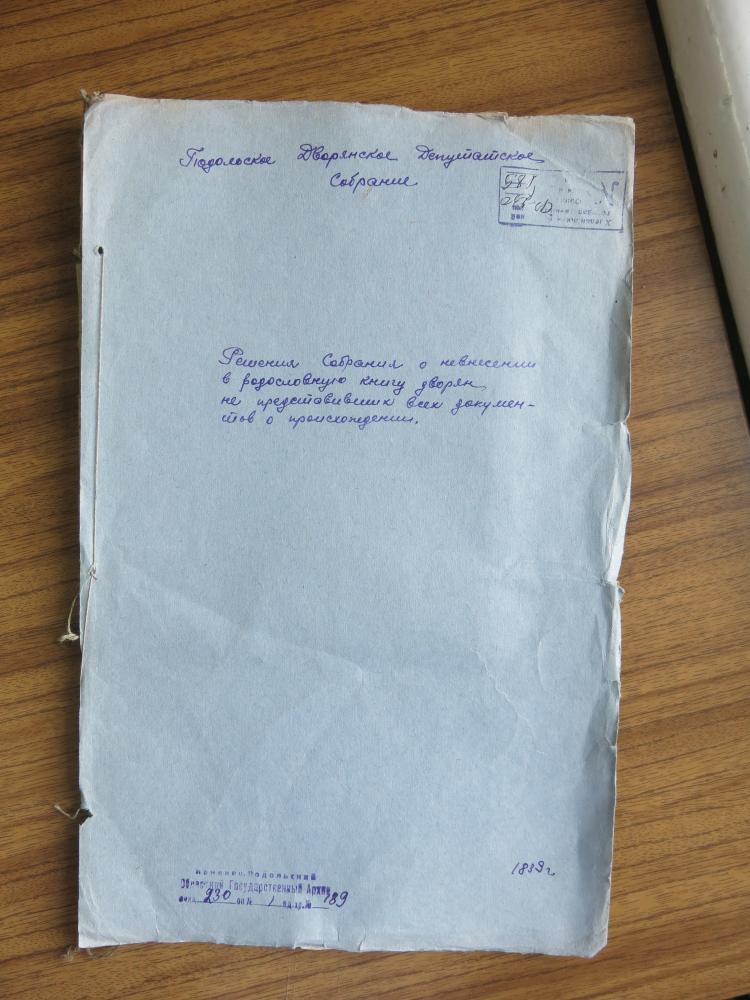 Подольское Дворянское Депутатское
Собрание
Решения Собрания о невнесении
в родословную книгу дворян,
не представивших всех докумен-
тов о происхождении.
1839 г
Каменец-Подольский
Областной Государственный Архив
фонд 230 оп № 1 ед. хр. № 189